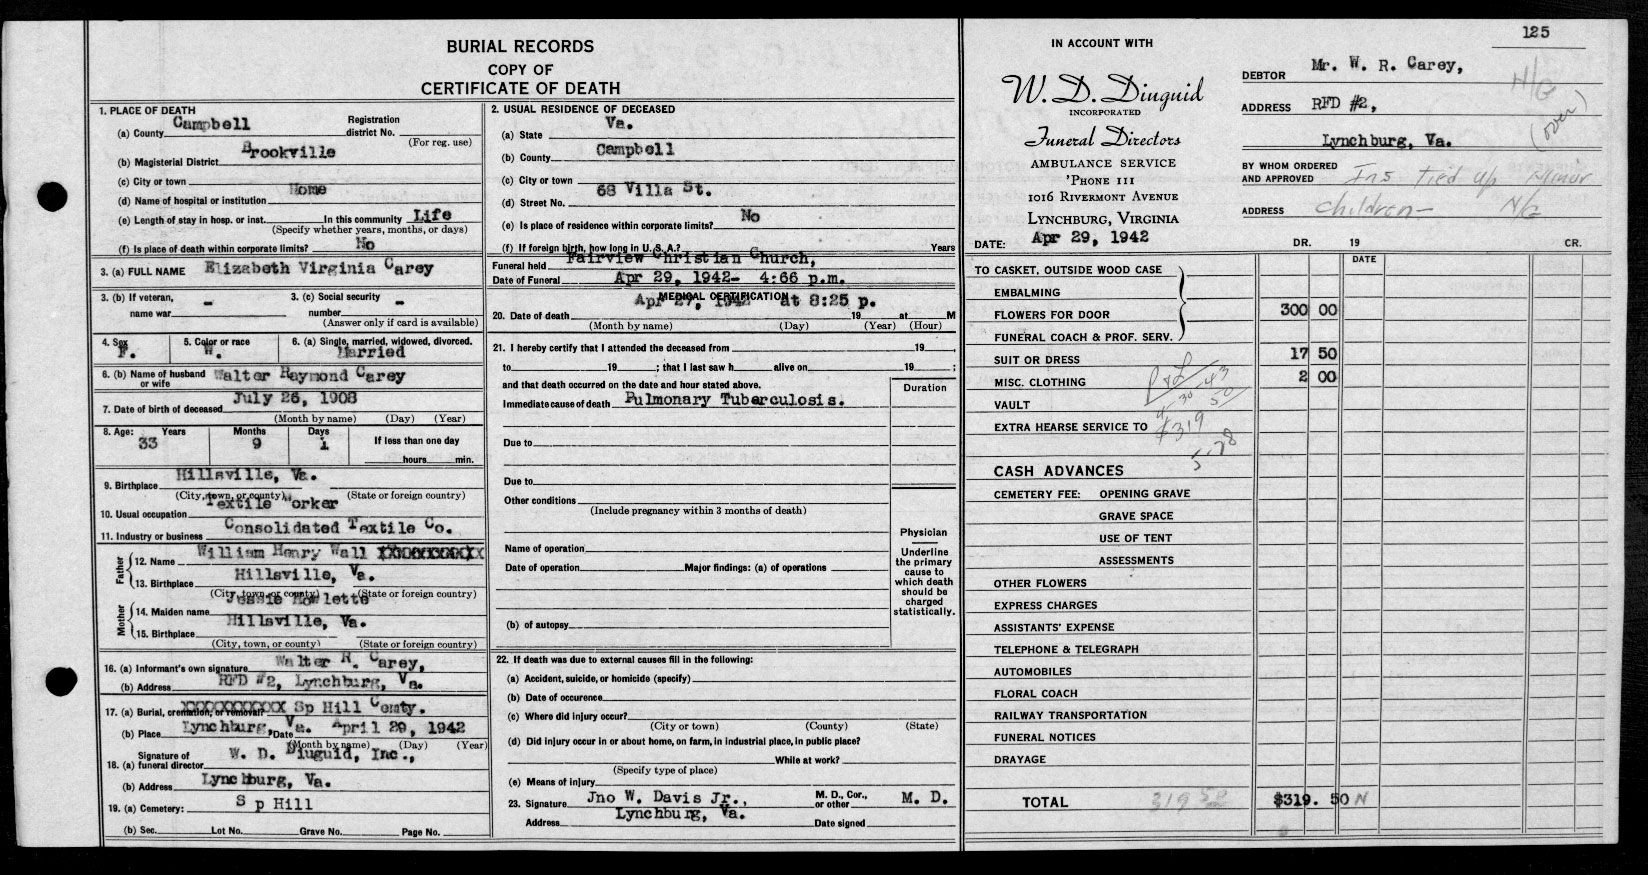 BURIAL RECORDS
COPY OF
CERTIFICATE OF DEATH
1. PLACE OF DEATH
(a) County Campbell Registration district No.
(For reg. use)
(b) Magisterial District Brookville
(c) City or town
(d) Name of hospital or institution Home
(e) Length of stay in hosp. or inst. In this community Life
(Specify whether years, months, or days)
(f) Is place of death within corporate limits? No
3. (a) FULL NAME Elizabeth Virginia Carey
3. (b) If veteran, name war - 3. (c) Social security number -
(Answer only if card is available)
4. Sex F. 5. Color or race W. 6. (a) Single, married, widowed, divorced. Married
6. (b) Name of husband or wife Walter Raymond Carey
7. Date of birth of deceased July 26, 1908
(Month by name) (Day) (Year)
8. Age: Years 33 Months 9 Days 1 If less than one day
hours min.
9. Birthplace Hillsville, Va.
(City, town, or county) (State or foreign country)
10. Usual occupation Textile Worker
11. Industry or business Consolidated Textile Co.
Father
12. Name William Henry Wall XXXXXXXXXX
13. Birthplace Hillsville, Va.
(City, town, or county) (State or foreign country)
Mother
14. Maiden name Jessie Howlette
15. Birthplace Hillsville, Va.
(City, town, or county) (State or foreign country)
16. (a) Informant's own signature Walter R. Carey,
(b) Address RFD #2, Lynchburg, Va.
17. (a) Burial, cremation, or removal? XXXXXXXXXXXX Sp Hill Cemty.
(b) Place Lynchburg, Va. Date April 29, 1942
(Month by name) (Day) (Year)
18. (a) Signature of funeral director W. D. Diuguid, Inc.,
(b) Address Lynchburg, Va.
19. (a) Cemetery: S p Hill
(b) Sec. Lot No. Grave No. Page No.
2. USUAL RESIDENCE OF DECEASED
(a) State Va.
(b) County Campbell
(c) City or town
(d) Street No. 68 Villa St.
(e) Is place of residence within corporate limits? No
(f) If foreign birth, how long in U. S. A.? Years
Funeral held Fairview Christian Church,
Date of Funeral Apr 29, 1942- 4:66 p.m.
MEDICAL CERTIFICATION
20. Date of death Apr 27, 1942 at 8:25 p. 19 at M
(Month by name) (Day) (Year) (Hour)
21. I hereby certify that I attended the deceased from 19 ,
to 19 ; that I last saw h alive on 19 ;
and that death occurred on the date and hour stated above.
Duration
Immediate cause of death Pulmonary Tuberculosis.
Due to
Due to
Other conditions
(Include pregnancy within 3 months of death)
Name of operation
Date of operation Major findings: (a) of operations
(b) of autopsy
Physician
Underline
the primary
cause to
which death
should be
charged
statistically.
22. If death was due to external causes fill in the following:
(a) Accident, suicide, or homicide (specify)
(b) Date of occurence
(c) Where did injury occur?
(City or town) (County) (State)
(d) Did injury occur in or about home, on farm, in industrial place, in public place?
While at work?
(Specify type of place)
(e) Means of injury
23. Signature Jno W. Davis Jr., M. D., Cor., or other M. D.
Address Lynchburg, Va. Date signed
125
IN ACCOUNT WITH
W. D. Diuguid
INCORPORATED
Funeral Directors
AMBULANCE SERVICE
'PHONE 111
1016 RIVERMONT AVENUE
LYNCHBURG, VIRGINIA
DATE: Apr 29, 1942
DEBTOR Mr. W. R. Carey,
N/G
ADDRESS RFD #2,
(over)
Lynchburg, Va.
BY WHOM ORDERED AND APPROVED Ins tied up Minor
ADDRESS children- N/G
DR. 19 CR.
DATE
TO CASKET, OUTSIDE WOOD CASE
EMBALMING
FLOWERS FOR DOOR 300 00
FUNERAL COACH & PROF. SERV.
SUIT OR DRESS 17 50
MISC. CLOTHING 2 00
VAULT
EXTRA HEARSE SERVICE TO
P & L
43
9 30 50
$319
5-78
CASH ADVANCES
CEMETERY FEE: OPENING GRAVE
GRAVE SPACE
USE OF TENT
ASSESSMENTS
OTHER FLOWERS
EXPRESS CHARGES
ASSISTANTS' EXPENSE
TELEPHONE & TELEGRAPH
AUTOMOBILES
FLORAL COACH
RAILWAY TRANSPORTATION
FUNERAL NOTICES
DRAYAGE
TOTAL 319 50 $319. 50 N